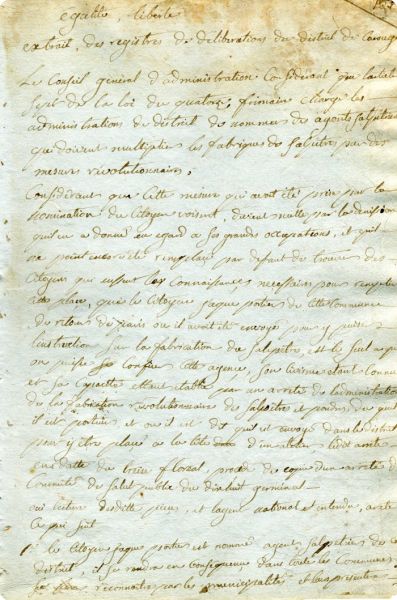 egalité, liberté
extrait, des registres de deliberations du district de Carouge
Le Conseil general d'administration Considerant que l'article
sept de la loi du quatorze frimaire Charge les
administrations de district de nommer des agents salpetriers
qui doivent multiplier les fabriques de Salpetre par des
mesures revolutionnaires,
Considerant que Cette mesure qui avoit été prise par la
nomination du Citoyen devient nulle par la demission
qu'il en a donné eu egard a ses grandes occupations, et qu'il
na point encore été remplacé par defaut de trouver des
Citoyens qui eussent les Connaissances necessaires pour remplir
Cette place, que le Citoyen jaque portier de Cette Commune
de retour de paris ou il avoit été envoyé pour y puiser
l'instruction sur la fabrication du Salpetre, est le seul a qui
on puisse Confier Cette agence, son Civisme etant Connu
et sa Capacité etant etablie par un arreté de l'administration
de la fabrication revolutionnaire de salpetre et poudres
il est porteur et ou il est dit qu'il est envoyé dans le district
pour y être placé a la tête d'un atelier ledit arreté
en datte du treize floreal, precedé de copie d'un arreté du
Committé de Salut public du dixhuit germinal
oui lecture desdittes pieces, et l'agent national et entendu, arrete
Ce qui suit
1° le Citoyen jaque portier est nommé agent Salpetrier de ce
district, il se rendra en Consequence dans toutes les Communes
se fera reconnaitre par les municipalités et leur presentera